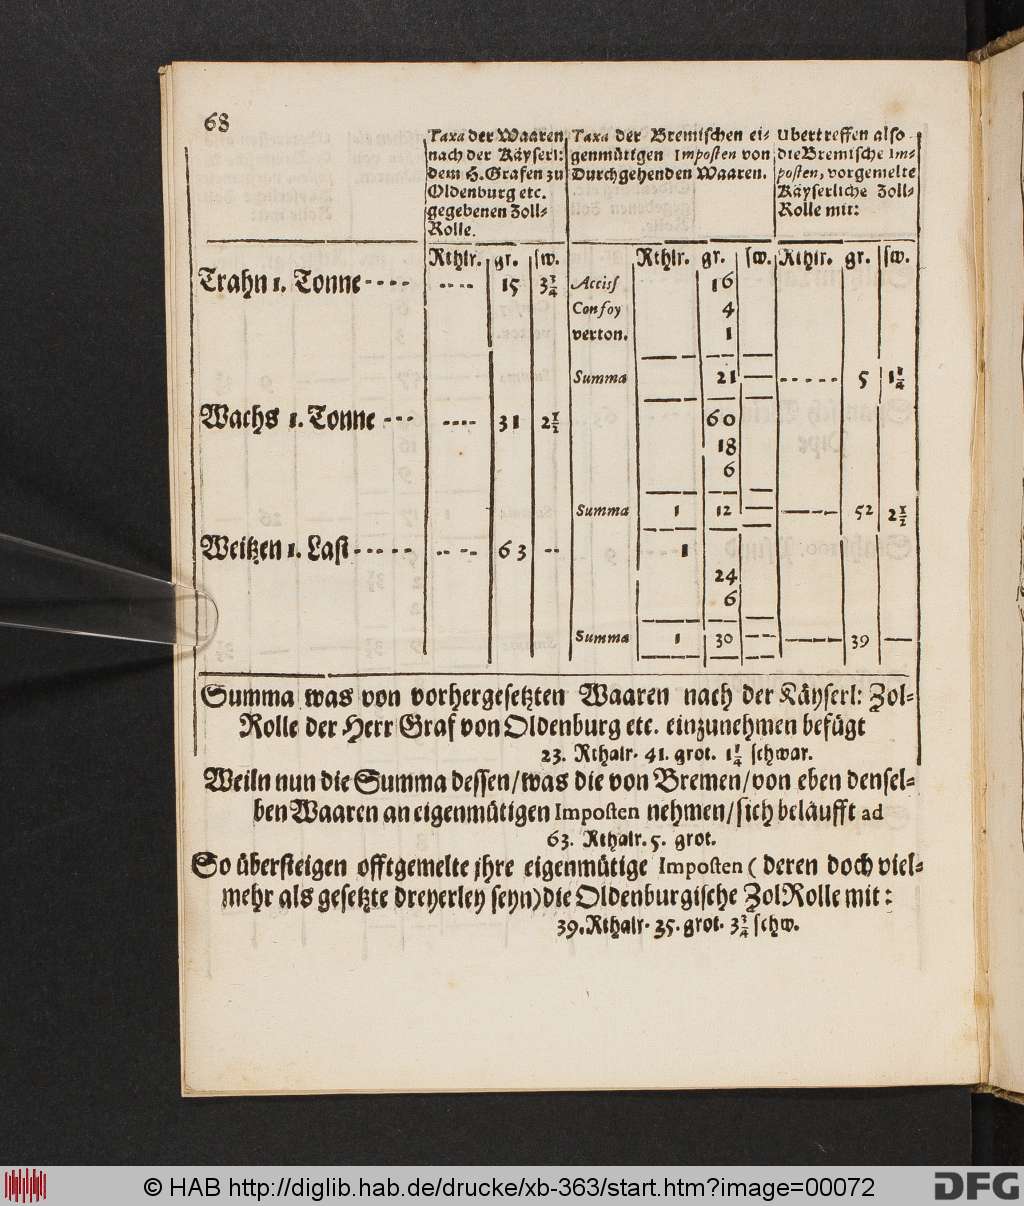 68
Taxa der Waaren nach der Käyserl: dem H. Grafen zu Oldenburg etc. gegebenen Zoll-Rolle.
Taxa der Bremischen eigenmütigen Imposten von Durchgehenden Waaren.
Ubertreffen also die Bremische Imposten, vorgemelte Käyserliche Zoll-Rolle mit:
Rthlr. gr. sw. Rthlr. gr. sw. Rthlr. gr. sw.
Trahn 1. Tonne ---- ---- 15 3¾ Acciss 16
Confoy 4
verton. 1
Summa 21 — ----- 5 1¼
Wachs 1. Tonne --- ---- 31 2½ 60
18
6
Summa 1 12 — ---- 52 2½
Weitzen 1. Last ----- -- -- 63 -- 1
24
6
Summa 1 30 -- —— 39 —
Summa was von vorhergesetzten Waaren nach der Käyserl: Zol-
Rolle der Herr Graf von Oldenburg etc. einzunehmen befügt
23. Rthalr. 41. grot. 1¼ schwar.
Weiln nun die Summa dessen/was die von Bremen/von eben densel-
ben Waaren an eigenmütigen Imposten nehmen/sich beläufft ad
63. Rthalr. 5. grot.
So übersteigen offtgemelte jhre eigenmütige Imposten ( deren doch viel-
mehr als gesetzte dreyerley seyn) die Oldenburgische ZolRolle mit:
39. Rthalr. 35. grot. 3¾ schw.
© HAB http://diglib.hab.de/drucke/xb-363/start.htm?image=00072
DFG